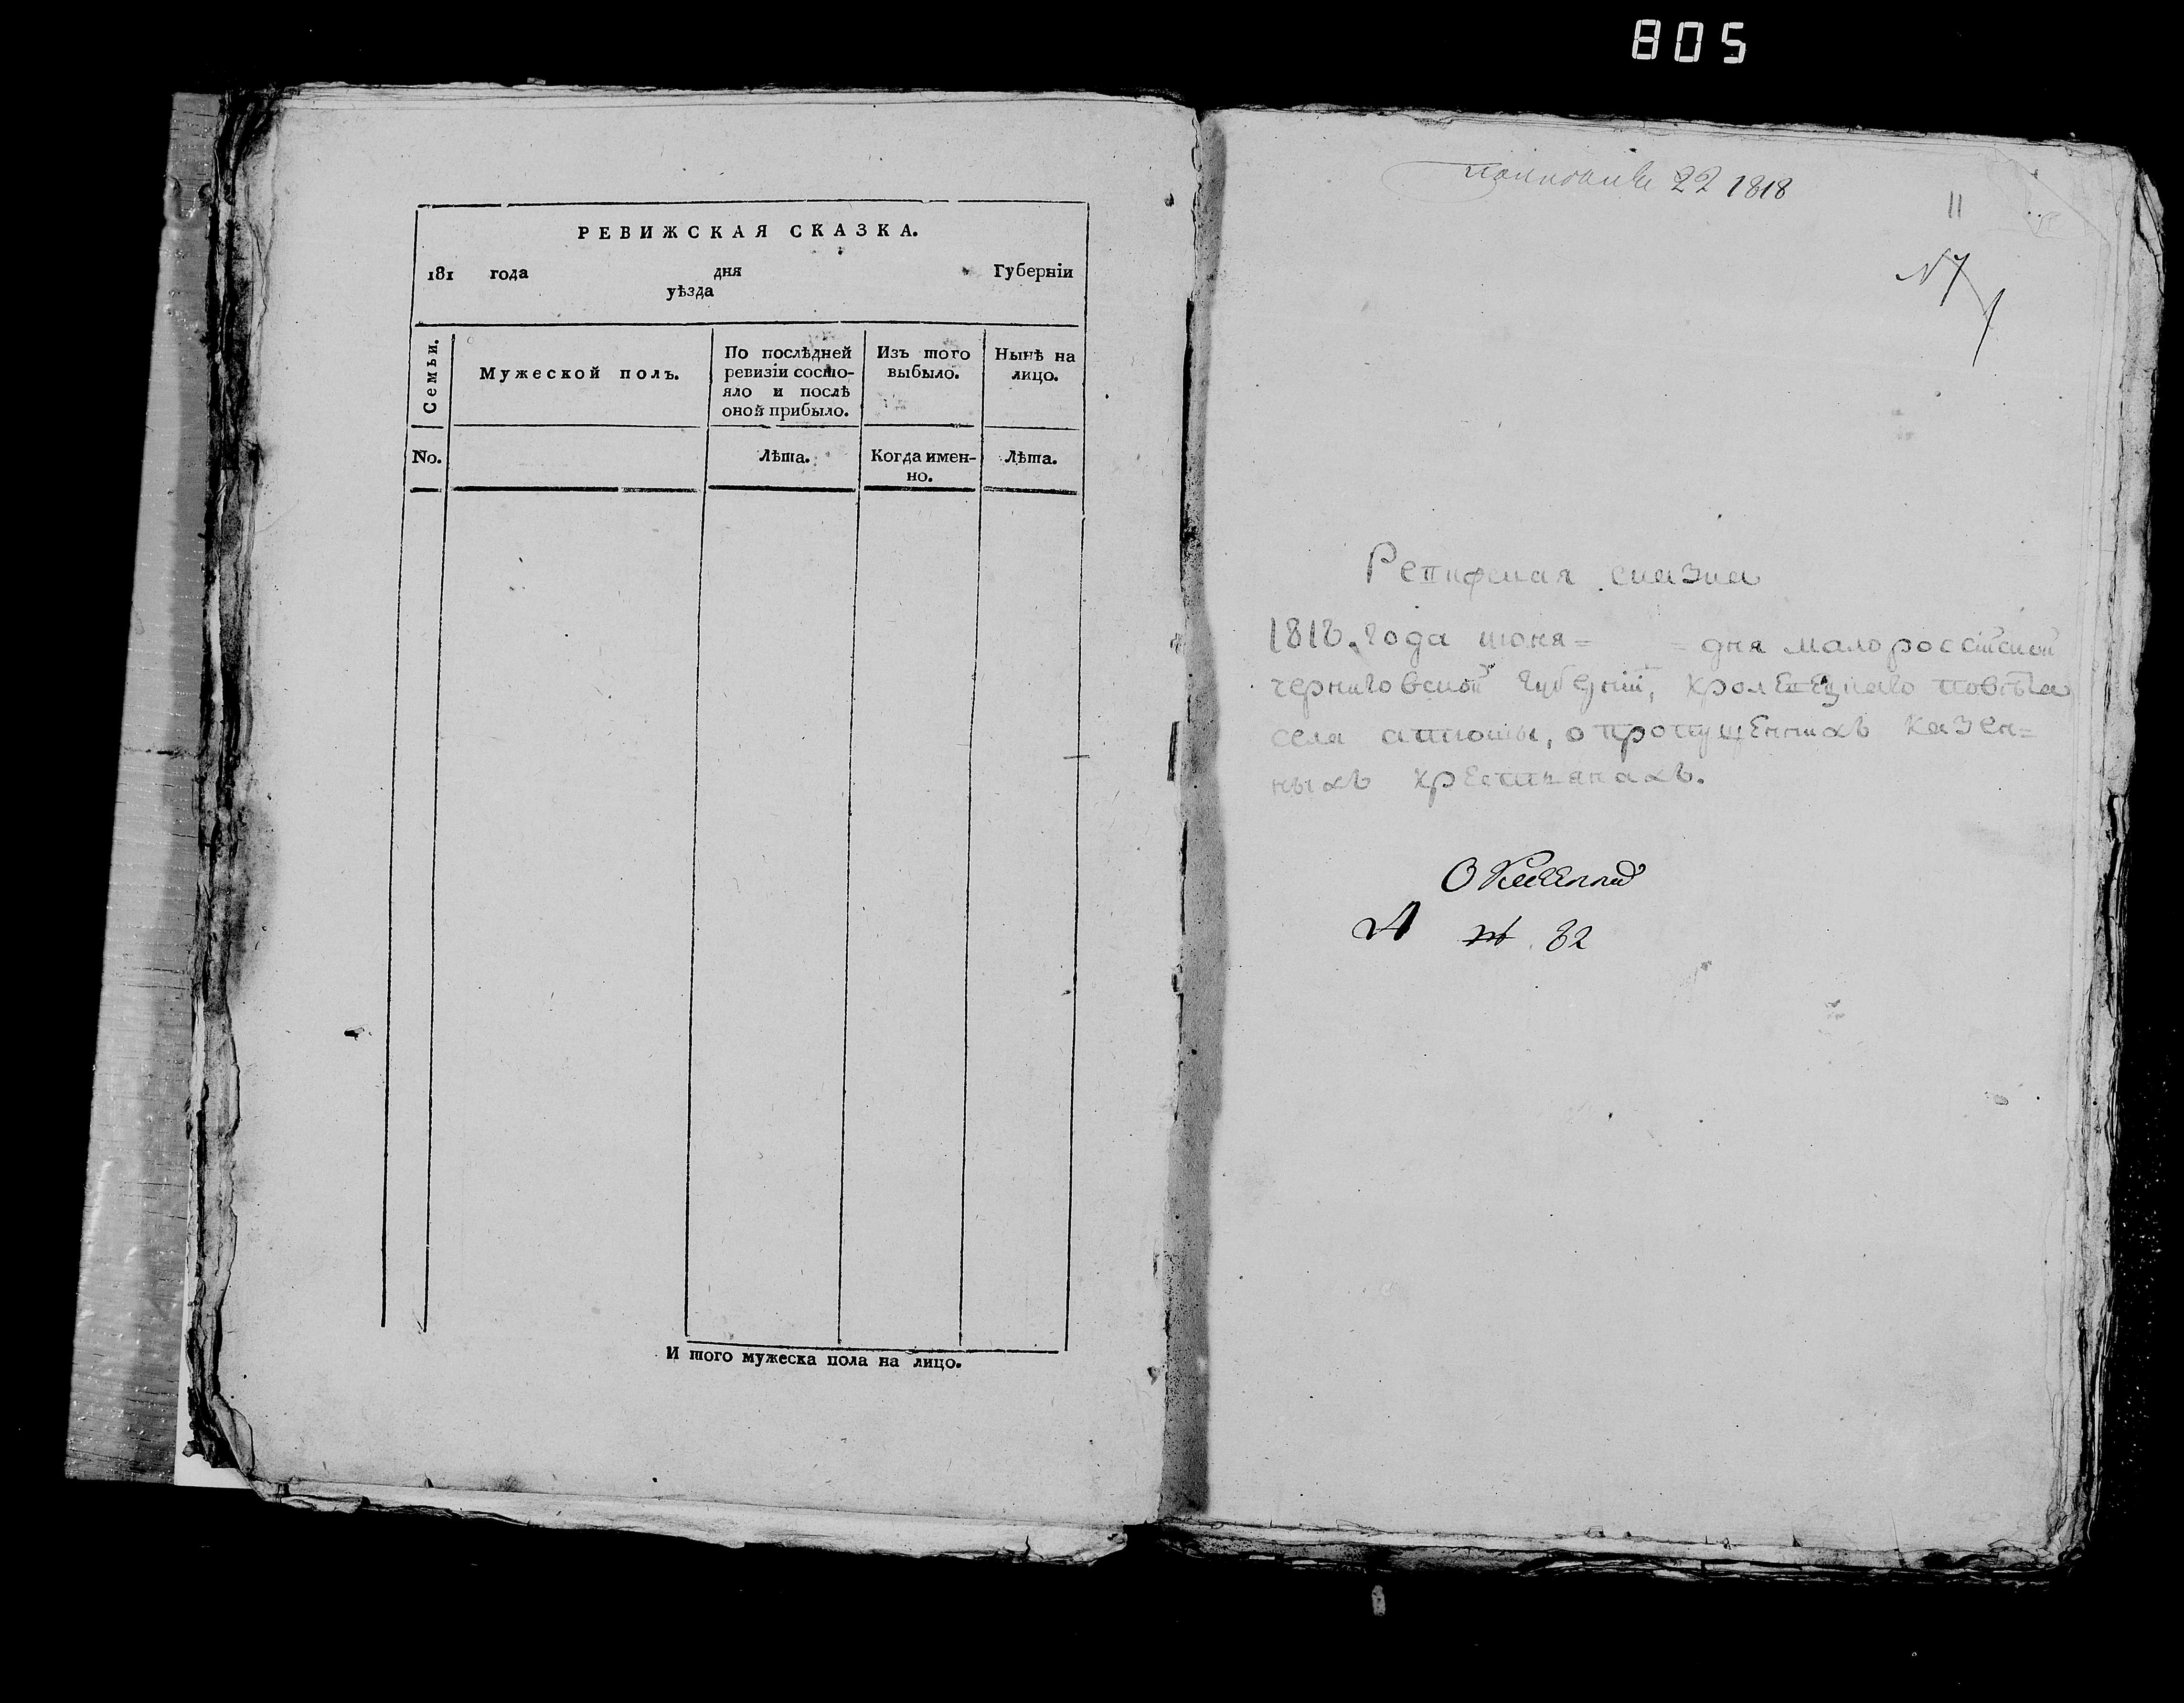 805
РЕВИЖСКАЯ СКАЗКА.
181 года дня Губерніи
уѣзда
Семьи.
Мужеской полъ.
По послѣдней ревизіи состояло и послѣ оной прибыло.
Изъ того выбыло.
Нынѣ на лицо.
No.
Лѣта.
Когда именно.
Лѣта.
И того мужеска пола на лицо.
22 1818
11
N 7
Ревижская сказка
1818. года июня= = дня малороссійской
черниговской губерніи, кролевецкаго повѣта
села атюши, о пропущенныхъ казен=
ныхъ крестянахъ.
82